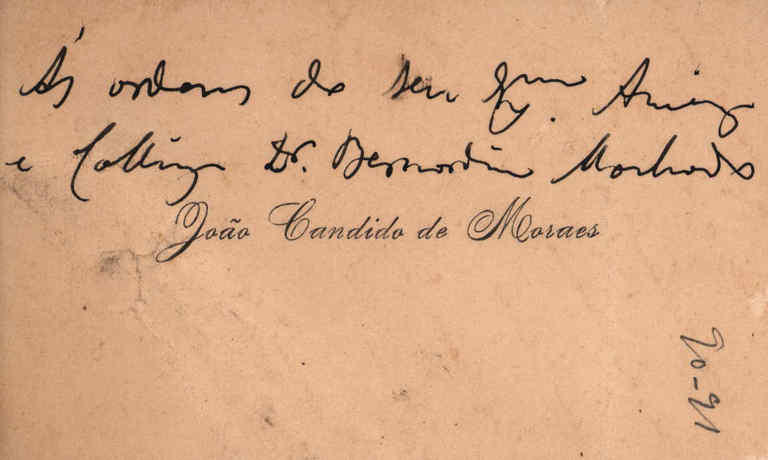 Ás ordens do seu Amigo
e Collega Dr. Bernardino Machado
João Candido de Moraes